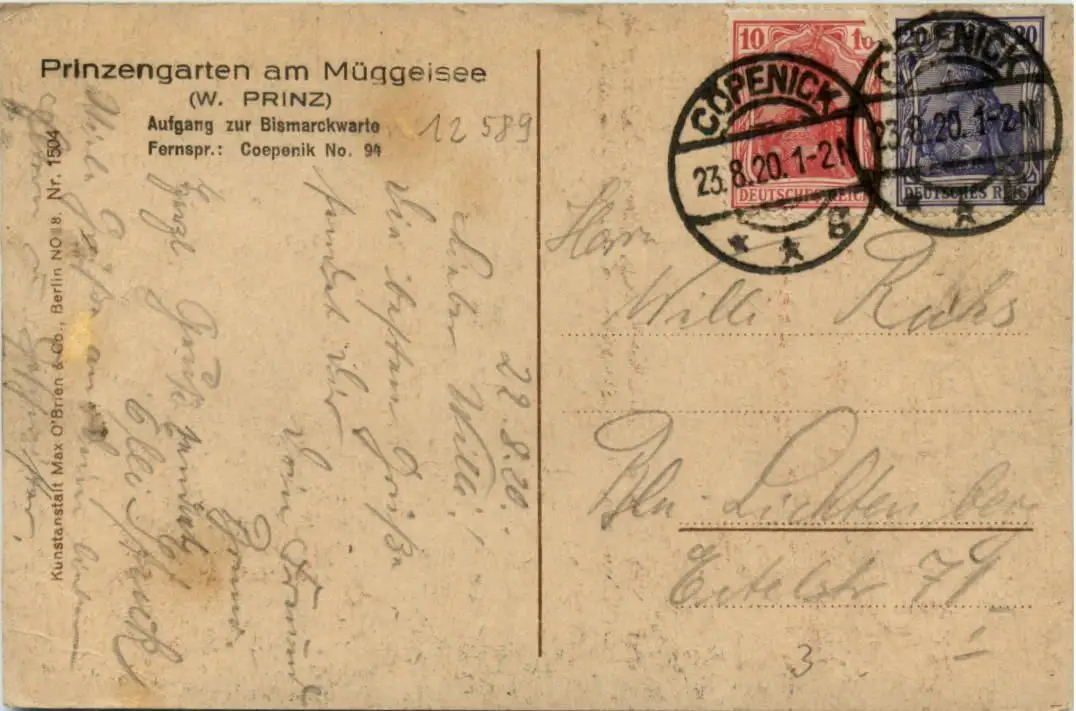 Prinzengarten am Müggelsee
(W. PRINZ)
Aufgang zur Bismarckwarte
Fernspr.: Coepenik No. 94
12589
Kunstanstalt Max O'Brien & Co., Berlin NO 18. Nr. 1504
10 10
DEUTSCHES REICH
20 20
DEUTSCHES REICH
CÖPENICK
23.8.20. 1-2N
CÖPENICK
23.8.20. 1-2N
Herrn
Willi
Bln. Lichtenberg
Eitelstr 79
3
22.8.20.
Lieber Willi!
Die besten Grüße
sendet Dir
Dein Freund
Bruno
Herzl. Grüße sendet
Viele Grüße